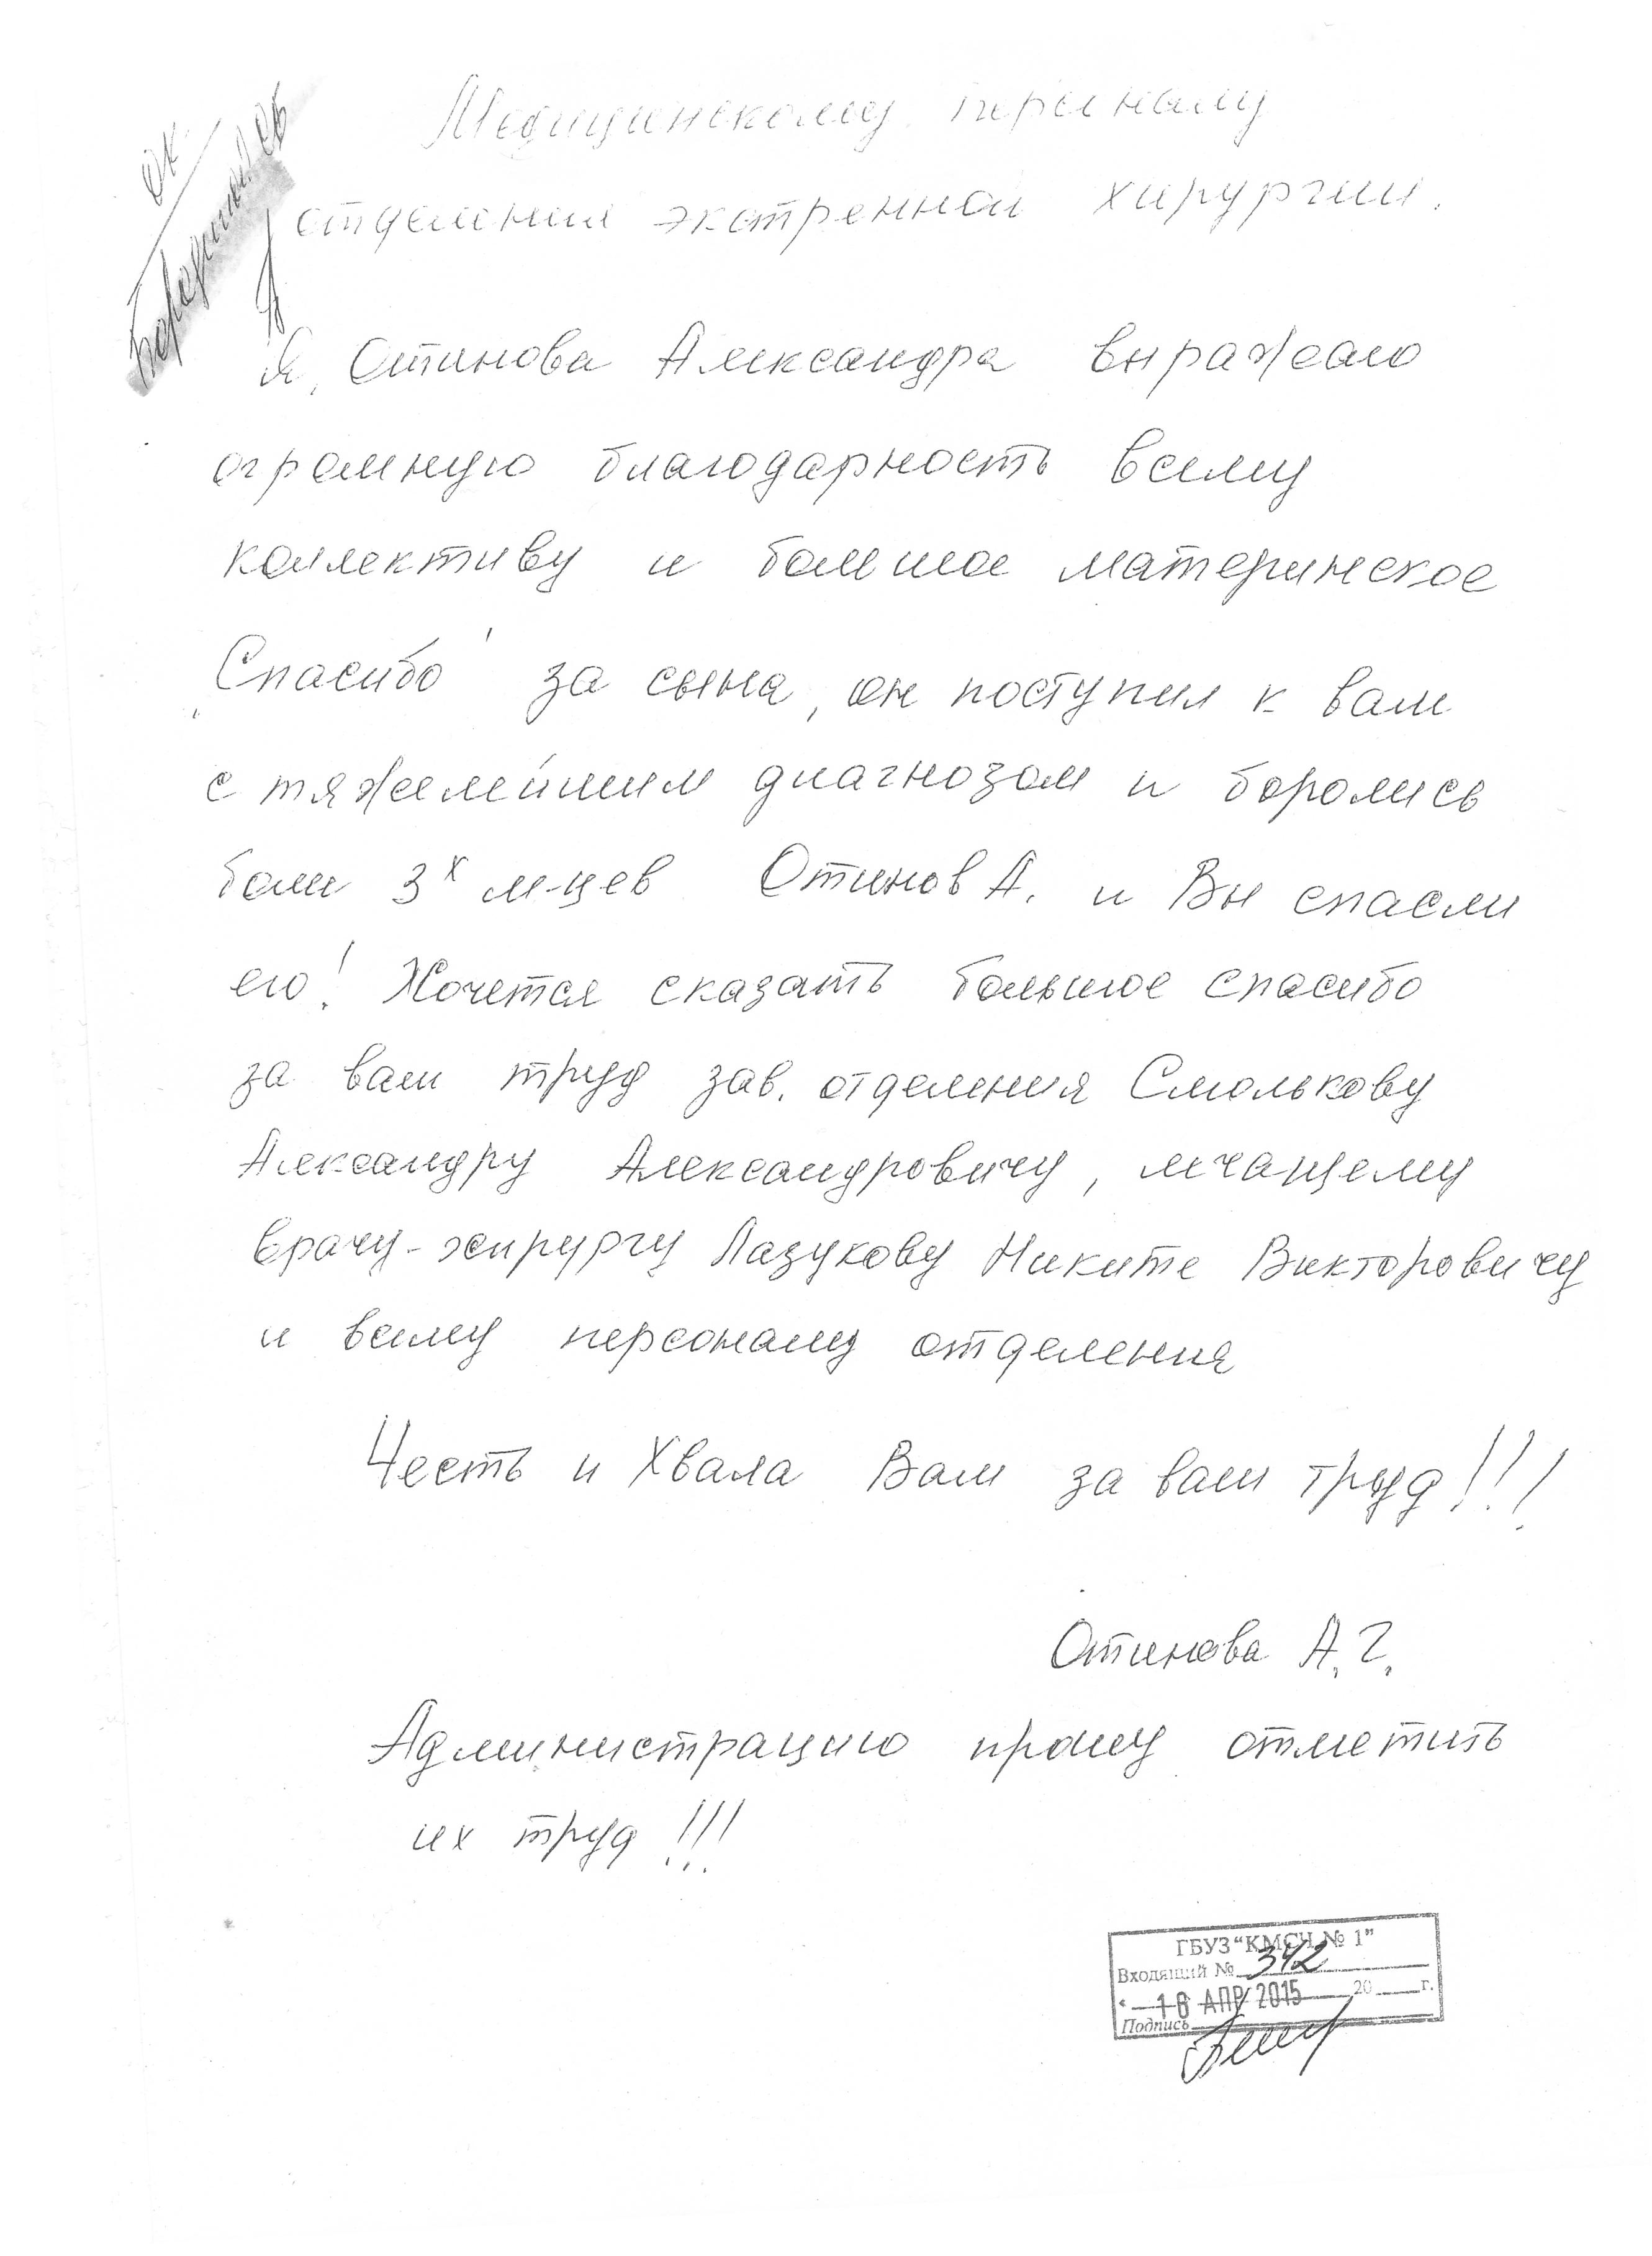 ОК
Медицинскому персоналу
отделения экстренной хирургии.
Я, Отинова Александра выражаю
огромную благодарность всему
коллективу и большое материнское
"Спасибо" за сына, он поступил к вам
с тяжелейшим диагнозом и боролись
боле 3х м-цев Отинов А. и Вы спасли
его! Хочется сказать большое спасибо
за ваш труд зав. отделения Смолькову
Александру Александровичу, лечащему
врачу-хирургу Лазукову Никите Викторовичу
и всему персоналу отделения
Честь и Хвала Вам за ваш труд!!!
Отинова А.Г.
Администрацию прошу отметить
их труд!!!
ГБУЗ "КМСЧ № 1"
Входящий № 342
16 АПР 2015 20 г.
Подпись